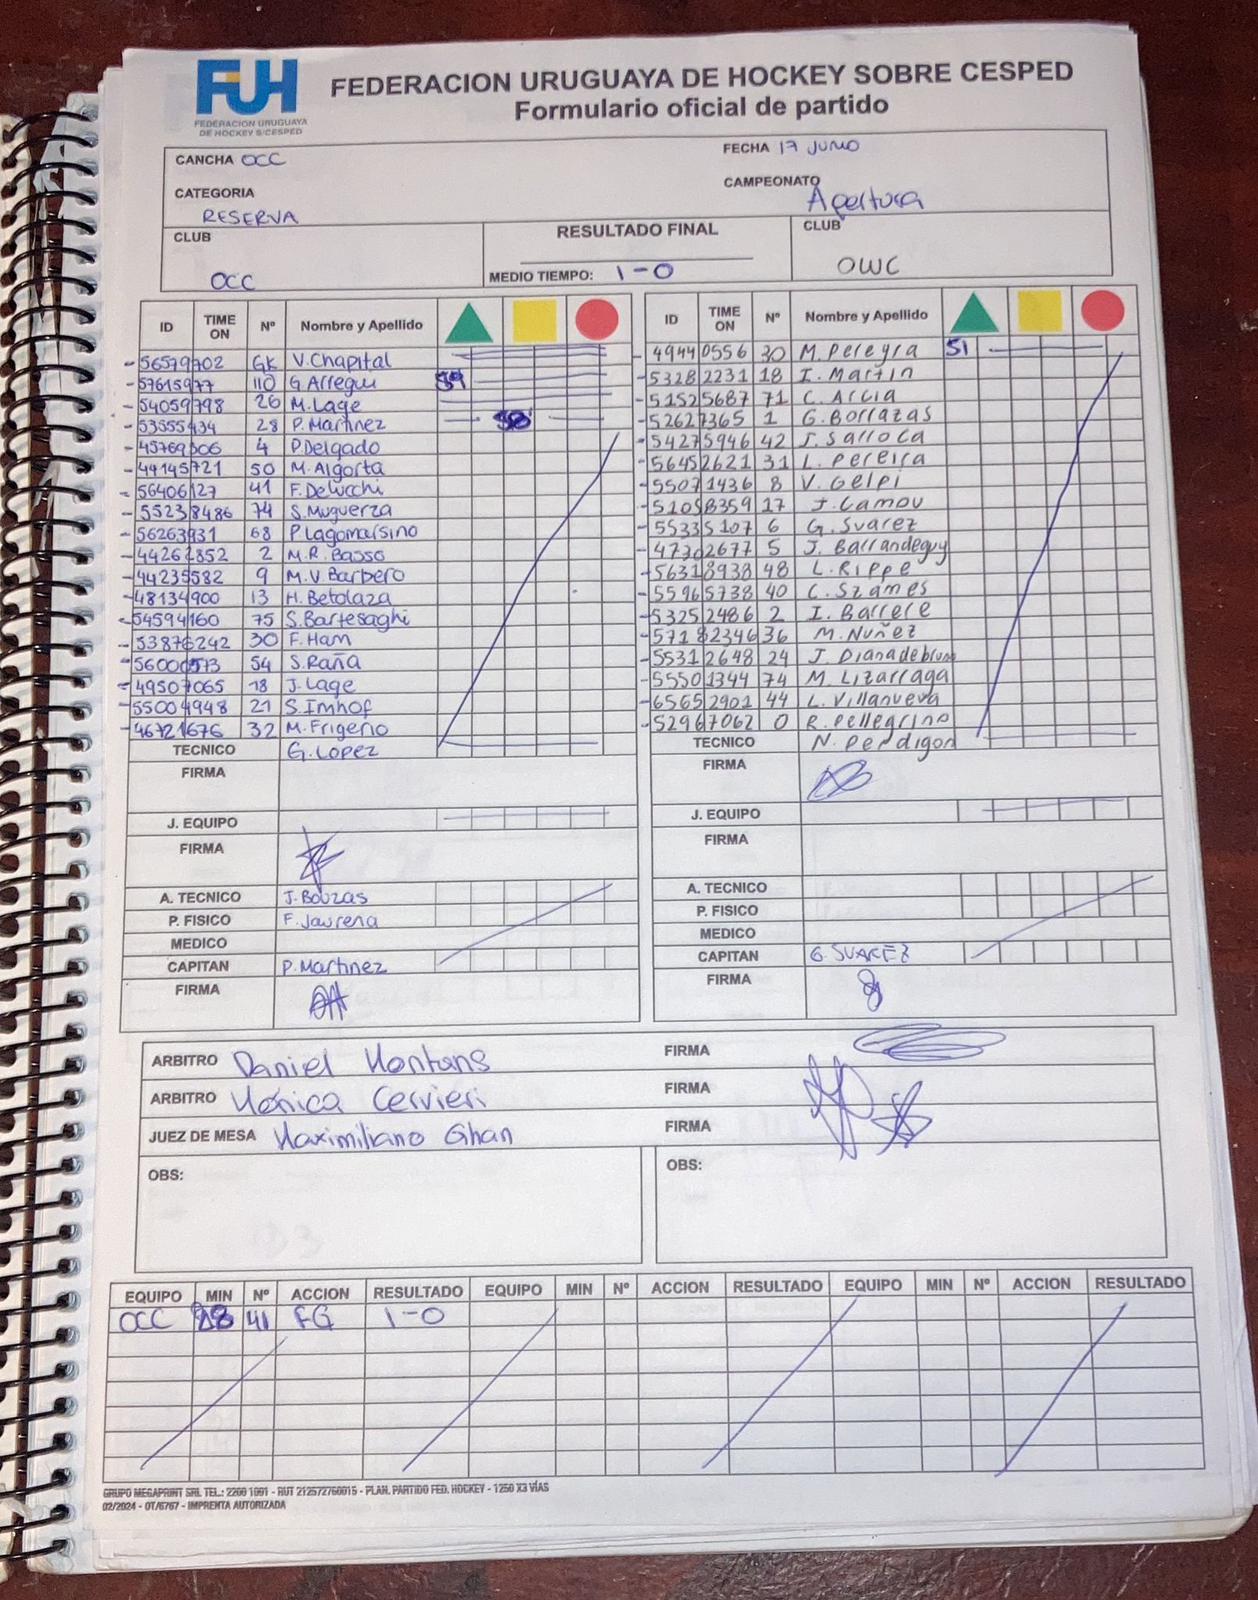 FUH
FEDERACION URUGUAYA
DE HOCKEY S/CESPED
FEDERACION URUGUAYA DE HOCKEY SOBRE CESPED
Formulario oficial de partido
CANCHA OCC
FECHA 17 JUNIO
CATEGORIA
RESERVA
CAMPEONATO
Apertura
CLUB
OCC
RESULTADO FINAL
MEDIO TIEMPO: 1-0
CLUB
OWC
ID TIME ON Nº Nombre y Apellido
56579702 GK V.Chapital
57615977 110 G.Arregui 59
54059798 26 M.Lage
53555434 28 P.Martinez
45769506 4 P.Delgado
44145721 50 M.Algorta
56406127 41 F.Delucchi
55238486 74 S.Muguerza
56263931 68 P.Lagomarsino
44262852 2 M.R.Basso
44235582 9 M.V.Barbero
48134900 13 H.Betolaza
54594160 75 S.Bartesaghi
53876242 30 F.Ham
56000573 54 S.Raña
49507065 18 J.Lage
55004948 21 S.Imhof
46721676 32 M.Frigerio
TECNICO G.Lopez
FIRMA
J. EQUIPO
FIRMA
A. TECNICO J.Bouzas
P. FISICO F.Jaurena
MEDICO
CAPITAN P.Martinez
FIRMA
ID TIME ON Nº Nombre y Apellido
49440556 30 M.Pereyra 51
53282231 18 I.Martin
51525687 71 C.Arcia
52627365 1 G.Borrazas
54275946 42 J.Sarroca
56452621 31 L.Pereira
55071436 8 V.Gelpi
51058359 17 J.Lamov
55335107 6 G.Suarez
47302677 5 J.Barrandeguy
56318938 48 L.Rippe
55965738 40 C.Szames
53252486 2 I.Barrere
57182346 36 M.Nuñez
55312648 24
55501344 74 M.Lizarraga
65652901 44 L.Villanueva
52967062 0 R.Pellegrino
TECNICO N.Perdigon
FIRMA
J. EQUIPO
FIRMA
A. TECNICO
P. FISICO
MEDICO
CAPITAN G.SUAREZ
FIRMA
ARBITRO Daniel Montans FIRMA
ARBITRO Mónica Cervieri FIRMA
JUEZ DE MESA Maximiliano Ghan FIRMA
OBS:
OBS:
EQUIPO MIN Nº ACCION RESULTADO EQUIPO MIN Nº ACCION RESULTADO EQUIPO MIN Nº ACCION RESULTADO
OCC 41 FG 1-0
GRUPO MEGAPRINT SRL TEL.: 2200 1091 - RUT 212572760015 - PLAN. PARTIDO FED. HOCKEY - 1250 X3 VÍAS
02/2024 - OT/6767 - IMPRENTA AUTORIZADA